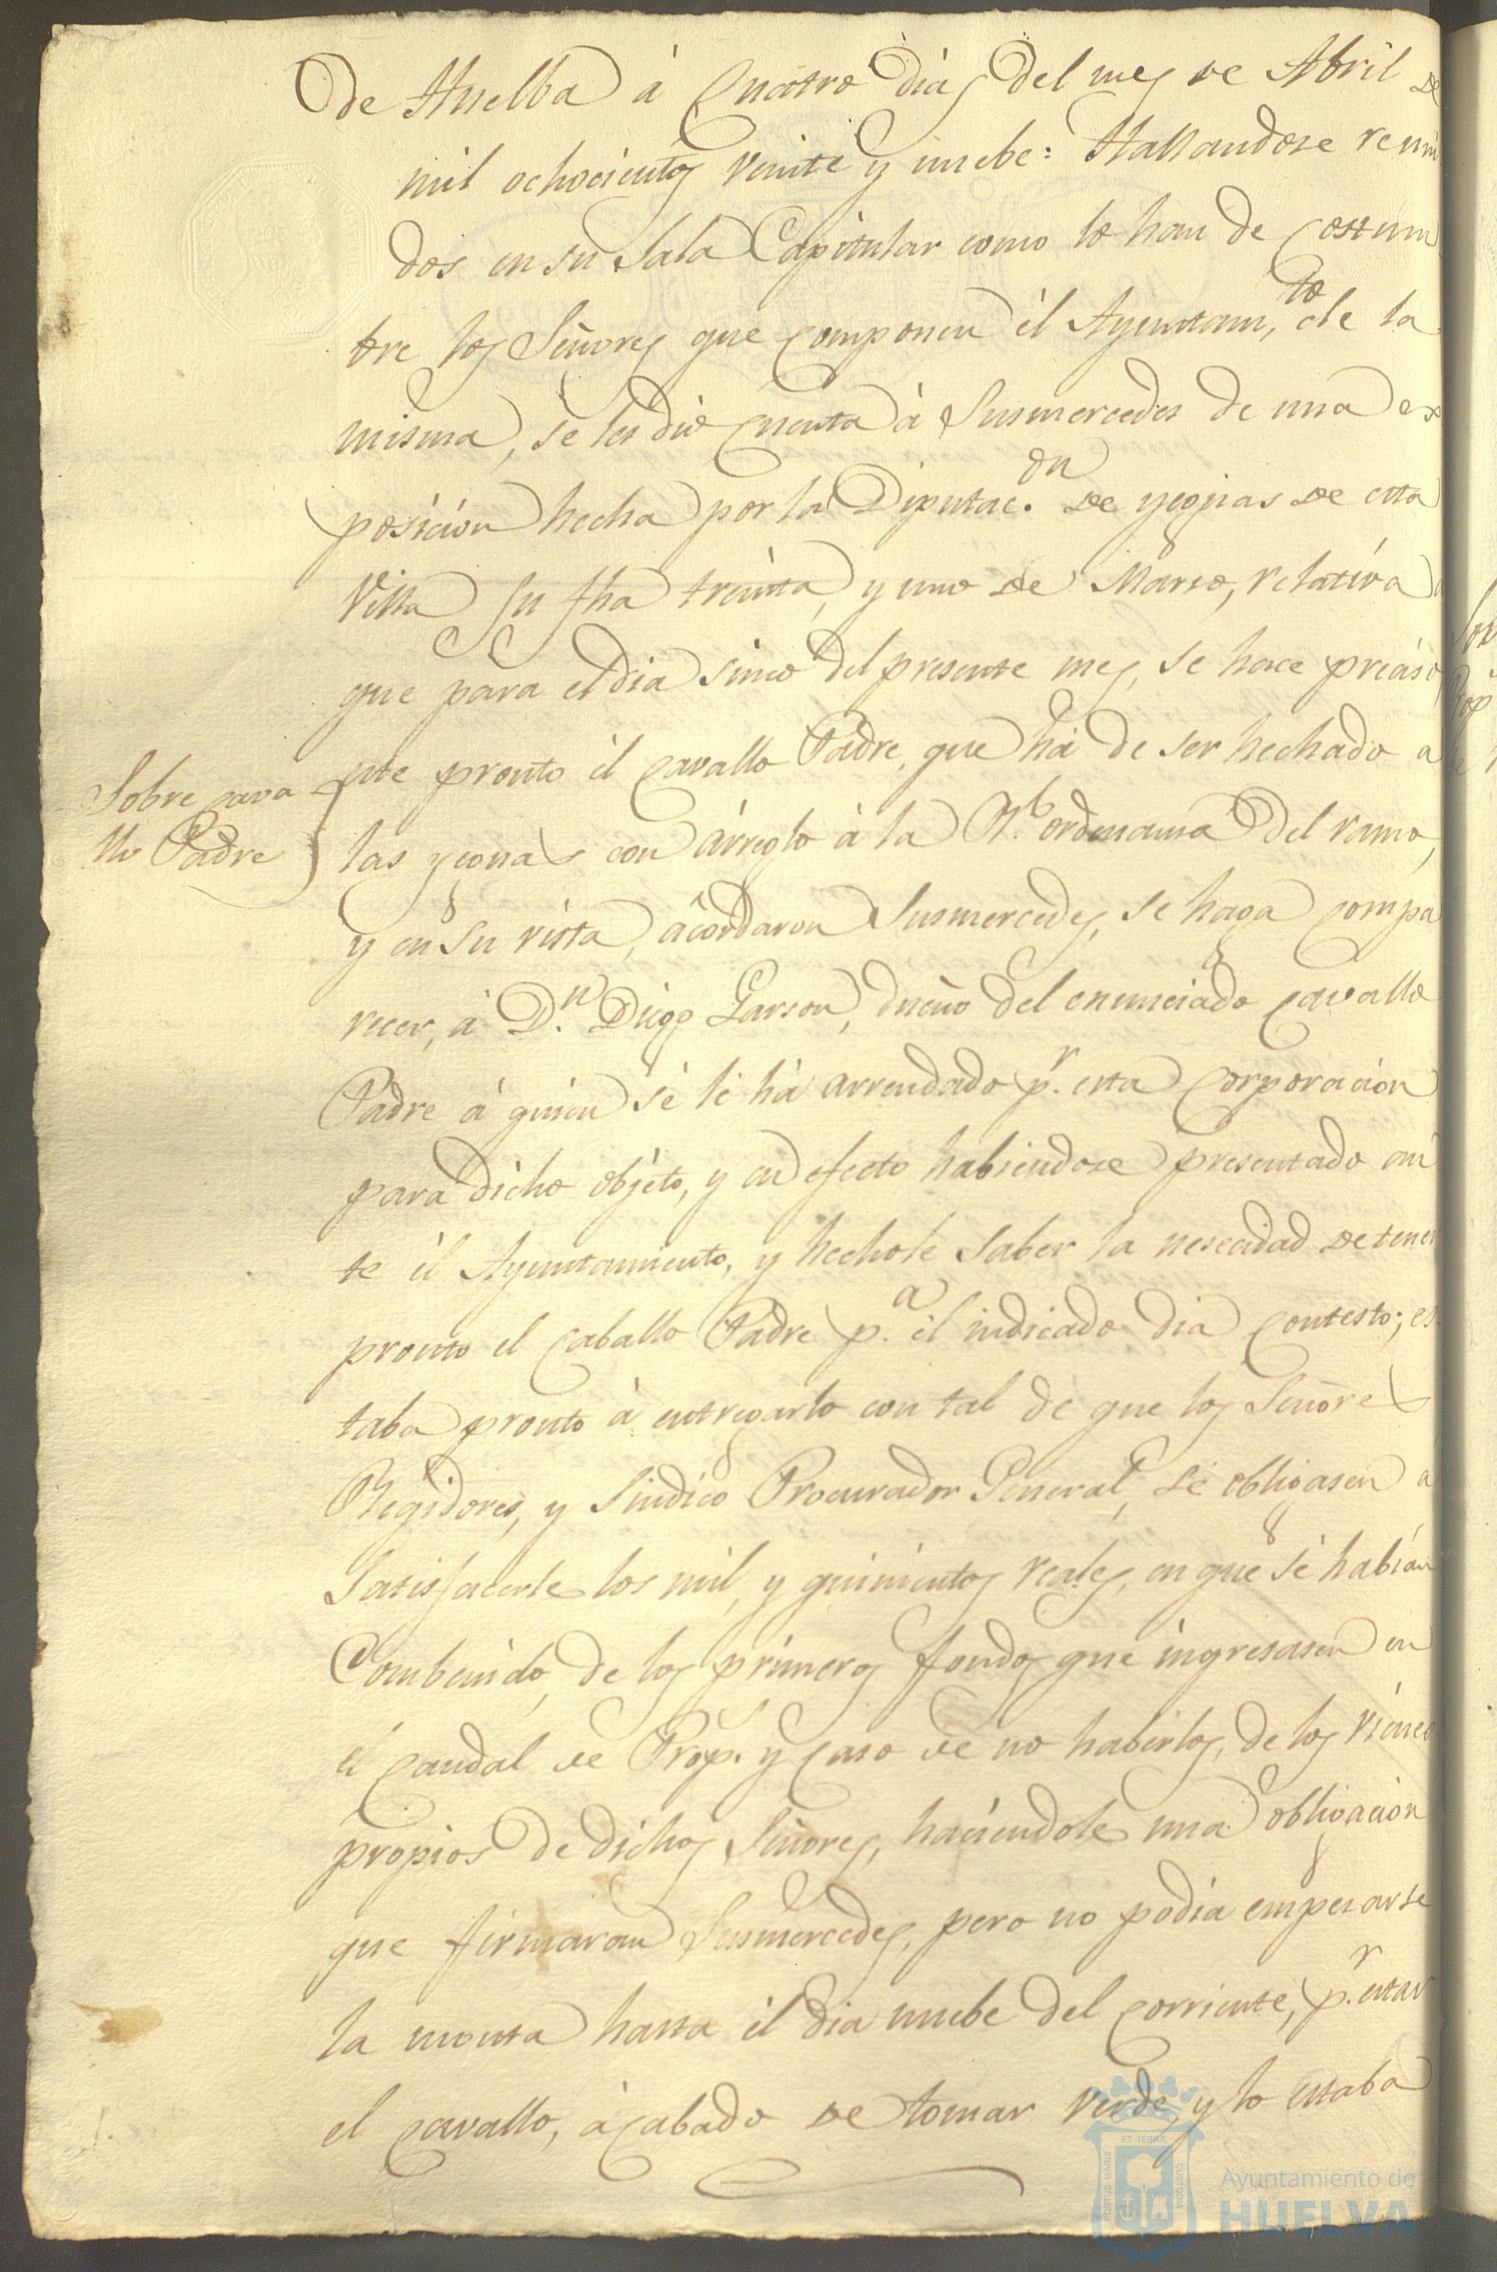 de Huelba à Quatro dias del mes de Abril de
mil ochocientos veinte y nuebe: Hallandose reuni
dos en su Sala Capitular como lo han de costum
bre los Señores que componen èl Ayuntam.to de la
misma, se les diò cuenta à Susmercedes de una ex
posicion hecha por la Diputac.on de yeguas de esta
Villa su fha treinta, y uno de Marso, relativa a
que para el dia sinco del presente mes, se hace preciso
Sobre cava
llo Padre
este pronto èl cavallo Padre, que hà de ser hechado a
las yeguas con àrreglo à la R.l ordenansa del ramo,
y en su vista, àcordaron Susmercedes, se haga compa
recer, à D.n Diego Garson, dueño del enunciado cavallo
Padre à quien sè le hà arrendado p.r esta corporacion
para dicho objeto, y en efecto habiendose presentado an
te èl Ayuntamiento, y hechole saber la nesecidad de tener
pronto el caballo Padre p.a èl indicado dia contesto; es
taba pronto à entregarlo con tal de que los Señores
Regidores, y Sindico Procurador General, sè obligasen a
Satisfacerle los mil, y quinientos reales, en que sè habian
Combenido, de los primeros fondos que ingresasen en
èl caudal de Prop.s y caso de no haberlos, de los vienes
propios de dichos Señores, haciendole una obligacion
que firmaran Susmercedes, pero no podia empesarse
la monta hasta èl dia nuebe del corriente, p.r estar
el cavallo, àcabado de tomar verde y lo estaba
PORTUS MARIS ET TERRÆ CUSTODIA
Ayuntamiento de
HUELVA